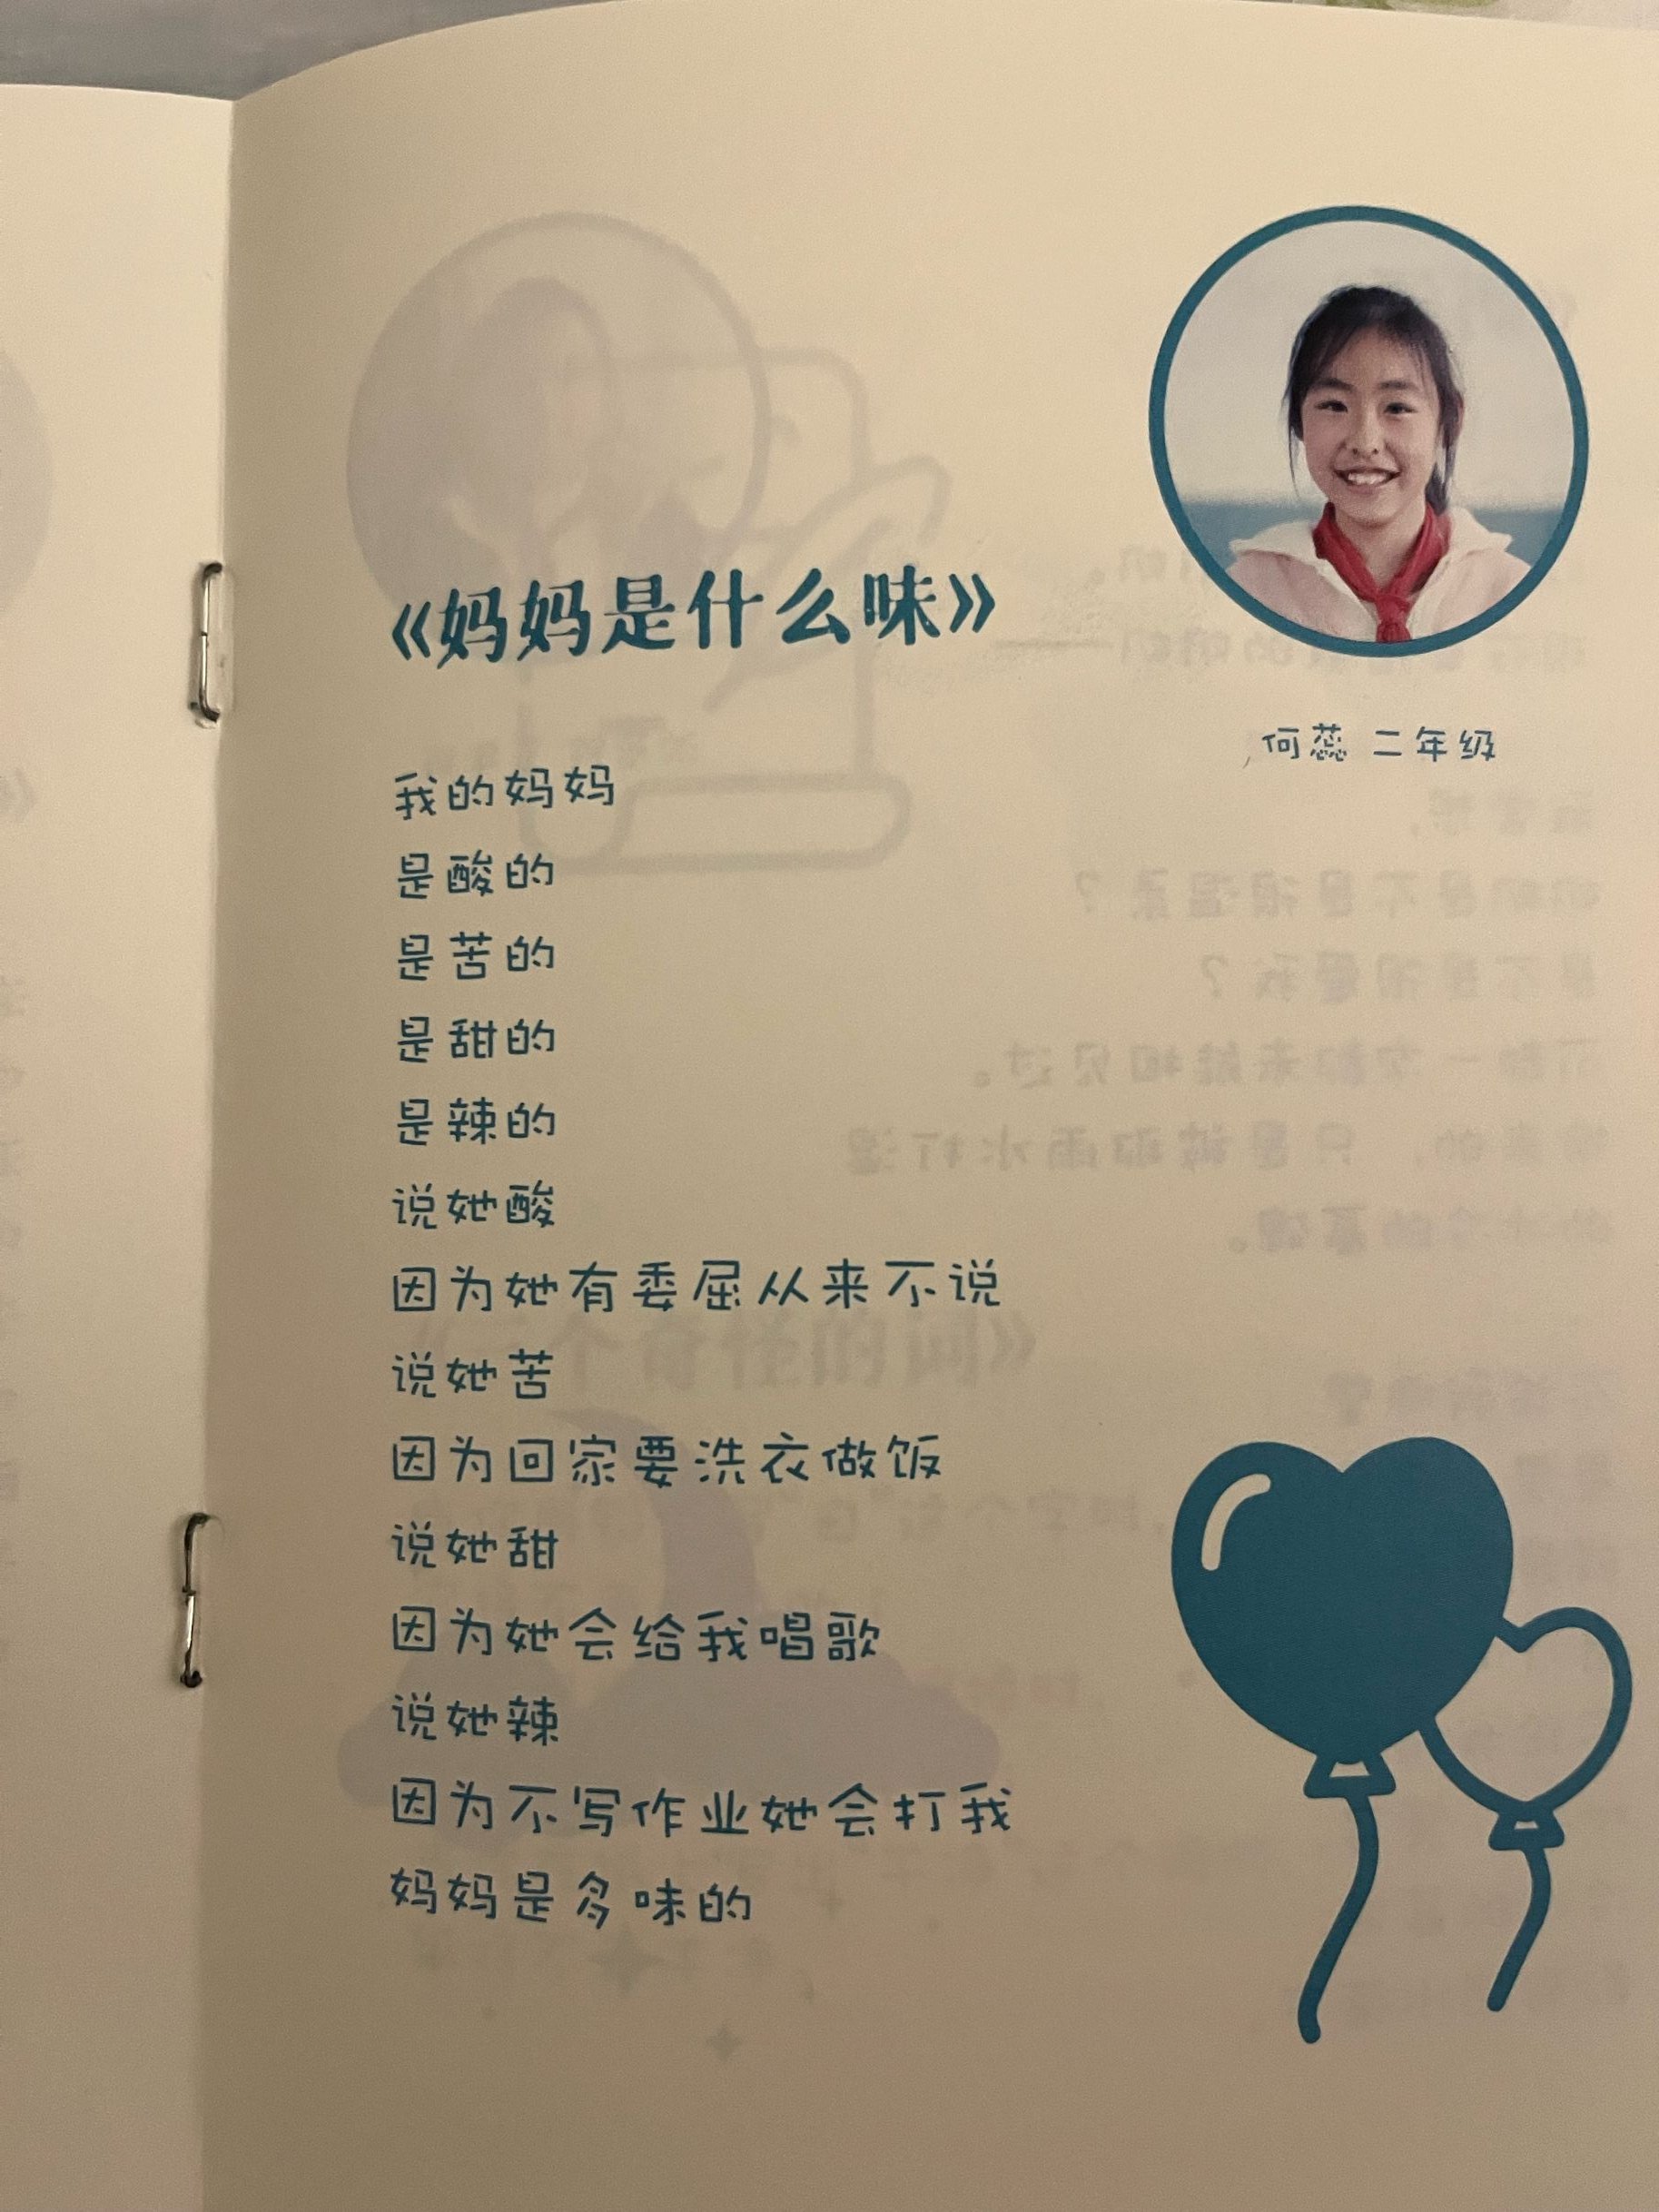 《妈妈是什么味》
何蕊 二年级
我的妈妈
是酸的
是苦的
是甜的
是辣的
说她酸
因为她有委屈从来不说
说她苦
因为回家要洗衣做饭
说她甜
因为她会给我唱歌
说她辣
因为不写作业她会打我
妈妈是多味的